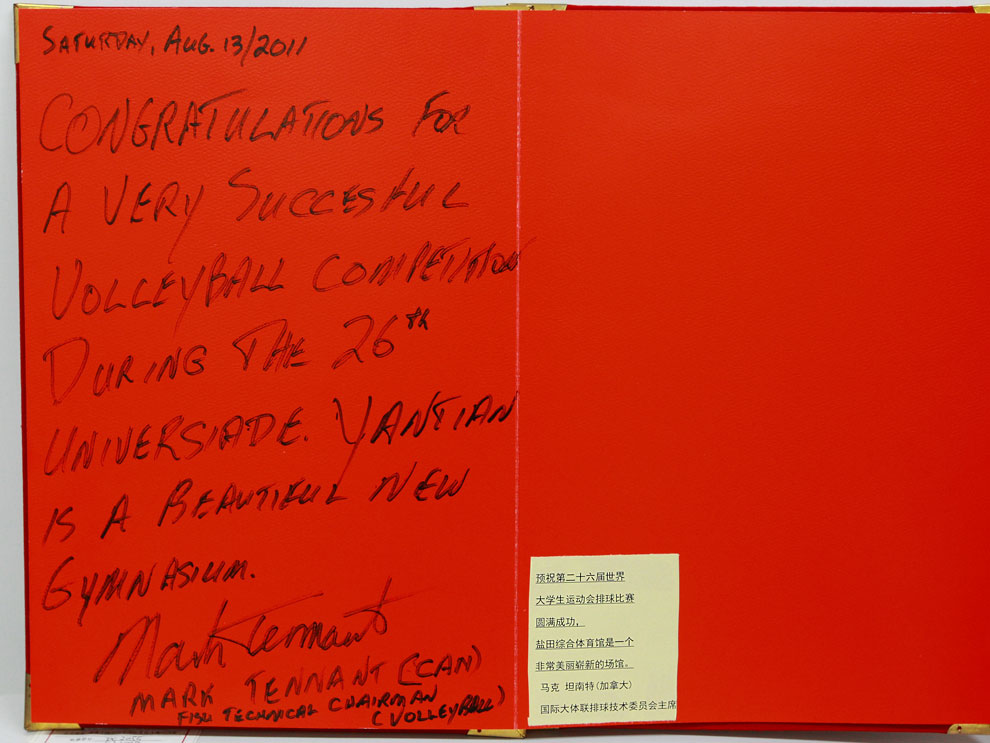 SATURDAY, AUG. 13/2011
CONGRATULATIONS FOR
A VERY SUCCESFUL
VOLLEYBALL COMPETITION
DURING THE 26th
UNIVERSIADE. YANTIAN
IS A BEAUTIFUL NEW
GYMNASIUM.
Mark Tennant
MARK TENNANT (CAN)
FISU TECHNICAL CHAIRMAN
(VOLLEYBALL)
预祝第二十六届世界
大学生运动会排球比赛
圆满成功，
盐田综合体育馆是一个
非常美丽崭新的场馆。
马克 坦南特(加拿大)
国际大体联排球技术委员会主席